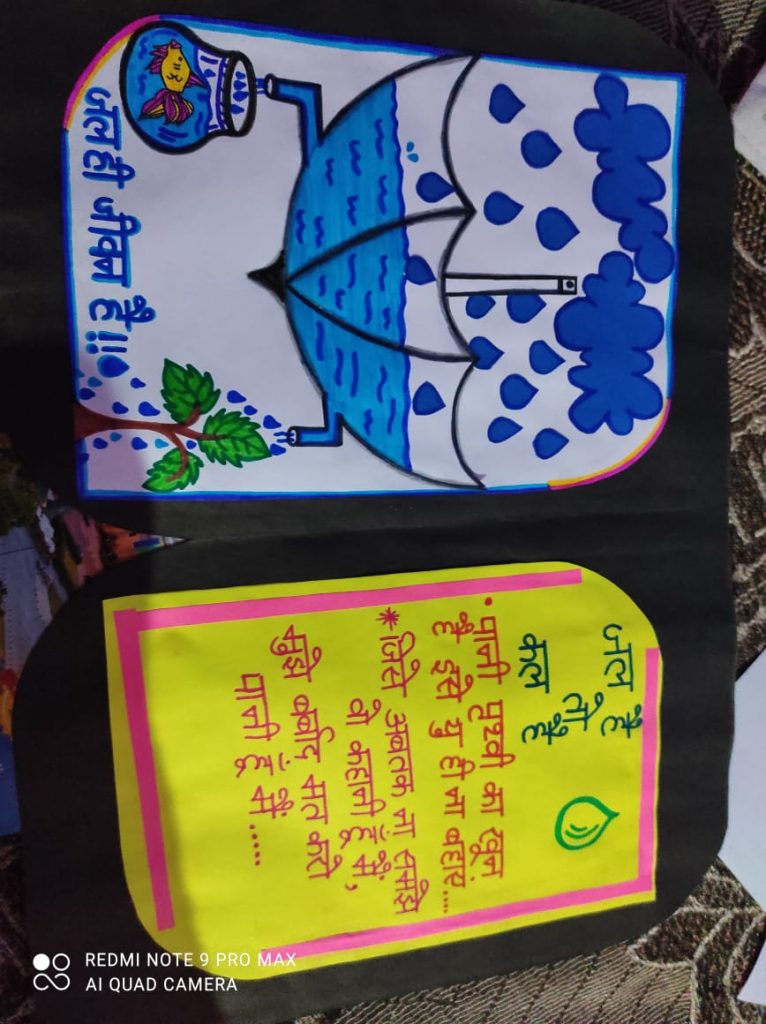 जल ही जीवन है!!
जल है
तो है
कल
• पानी पृथ्वी का खून
है इसे यु ही ना बहाए....
* जिसे अबतक ना समझे
वो कहानी हूँ मैं,
मुझे बर्बाद मत करो
पानी हूँ मैं.....
REDMI NOTE 9 PRO MAX
AI QUAD CAMERA